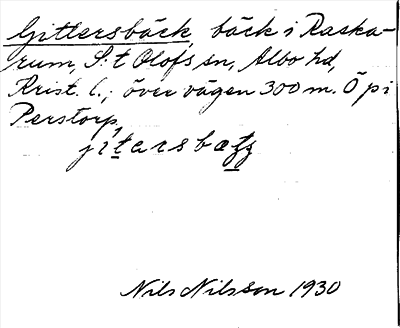 Gittersbäck, bäck i Raska-
rum, S:t Olofs sn, Albo hd,
Krist. l.; över vägen 300 m. Ö p i
Perstorp.
jitarsbæ
Nils Nilsson 1930